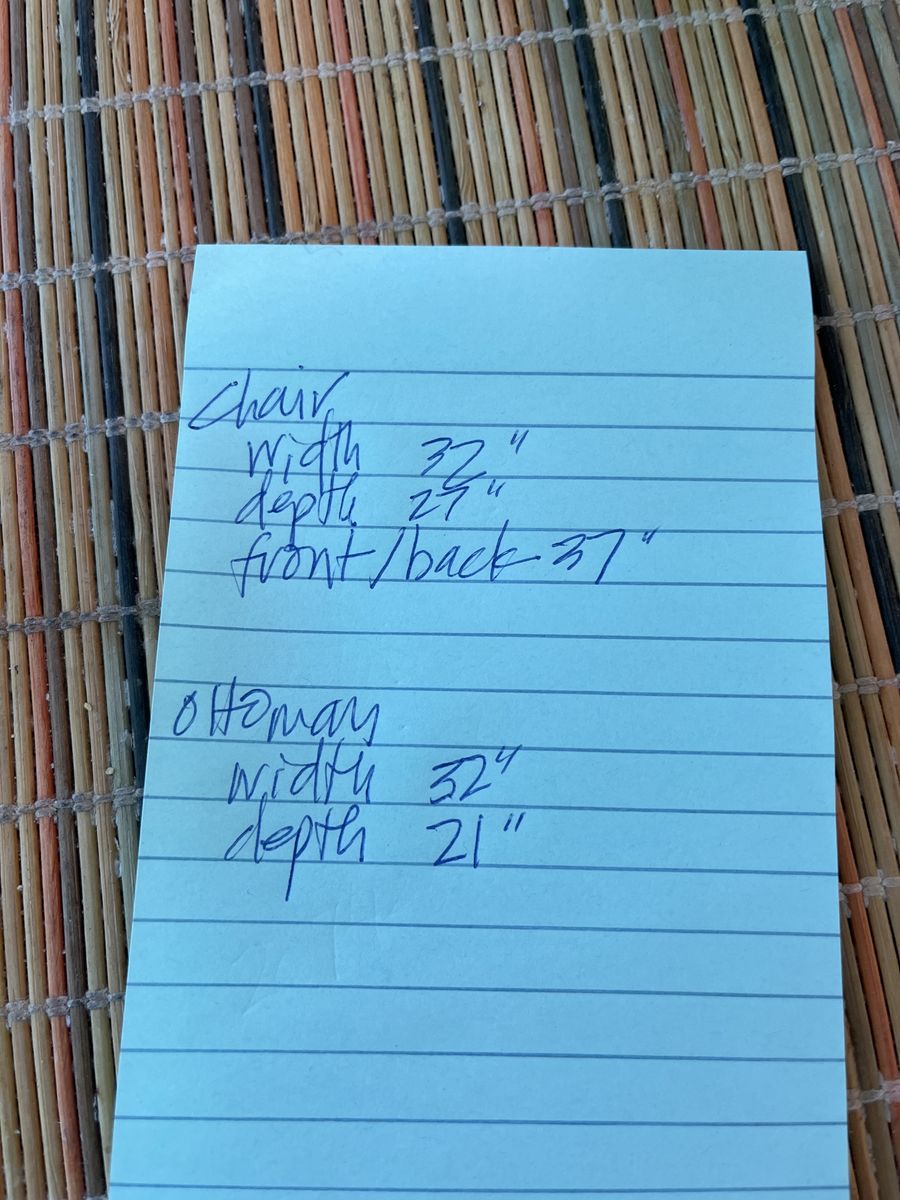 Chair
width 32"
depth 27"
front/back 37"
ottoman
width 32"
depth 21"